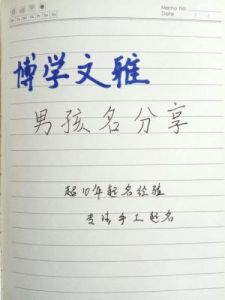 Memo No.
Date
博学文雅
男孩名分享
超10年起名经验
专注手工起名